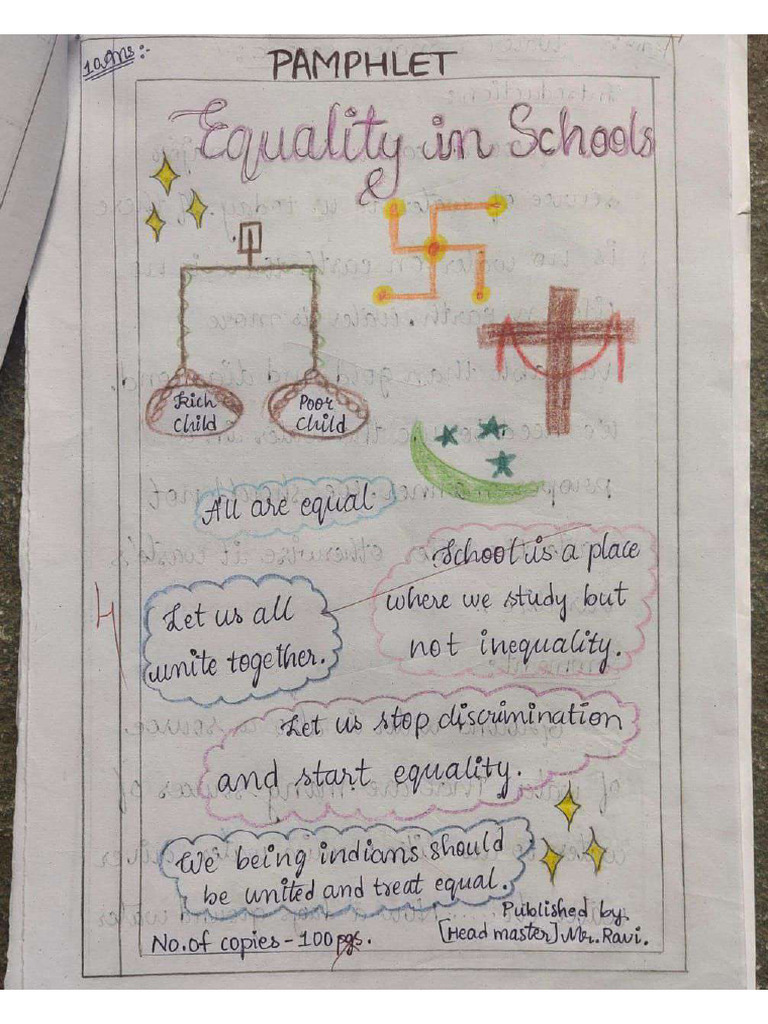 10Ans:-
PAMPHLET
Equality in Schools
Rich
child
Poor
child
All are equal
School is a place
where we study but
not inequality.
Let us all
unite together.
Let us stop discrimination
and start equality.
We being indians should
be united and treat equal.
Published by
[Head master] Mr. Ravi.
No. of copies - 100 pgs.